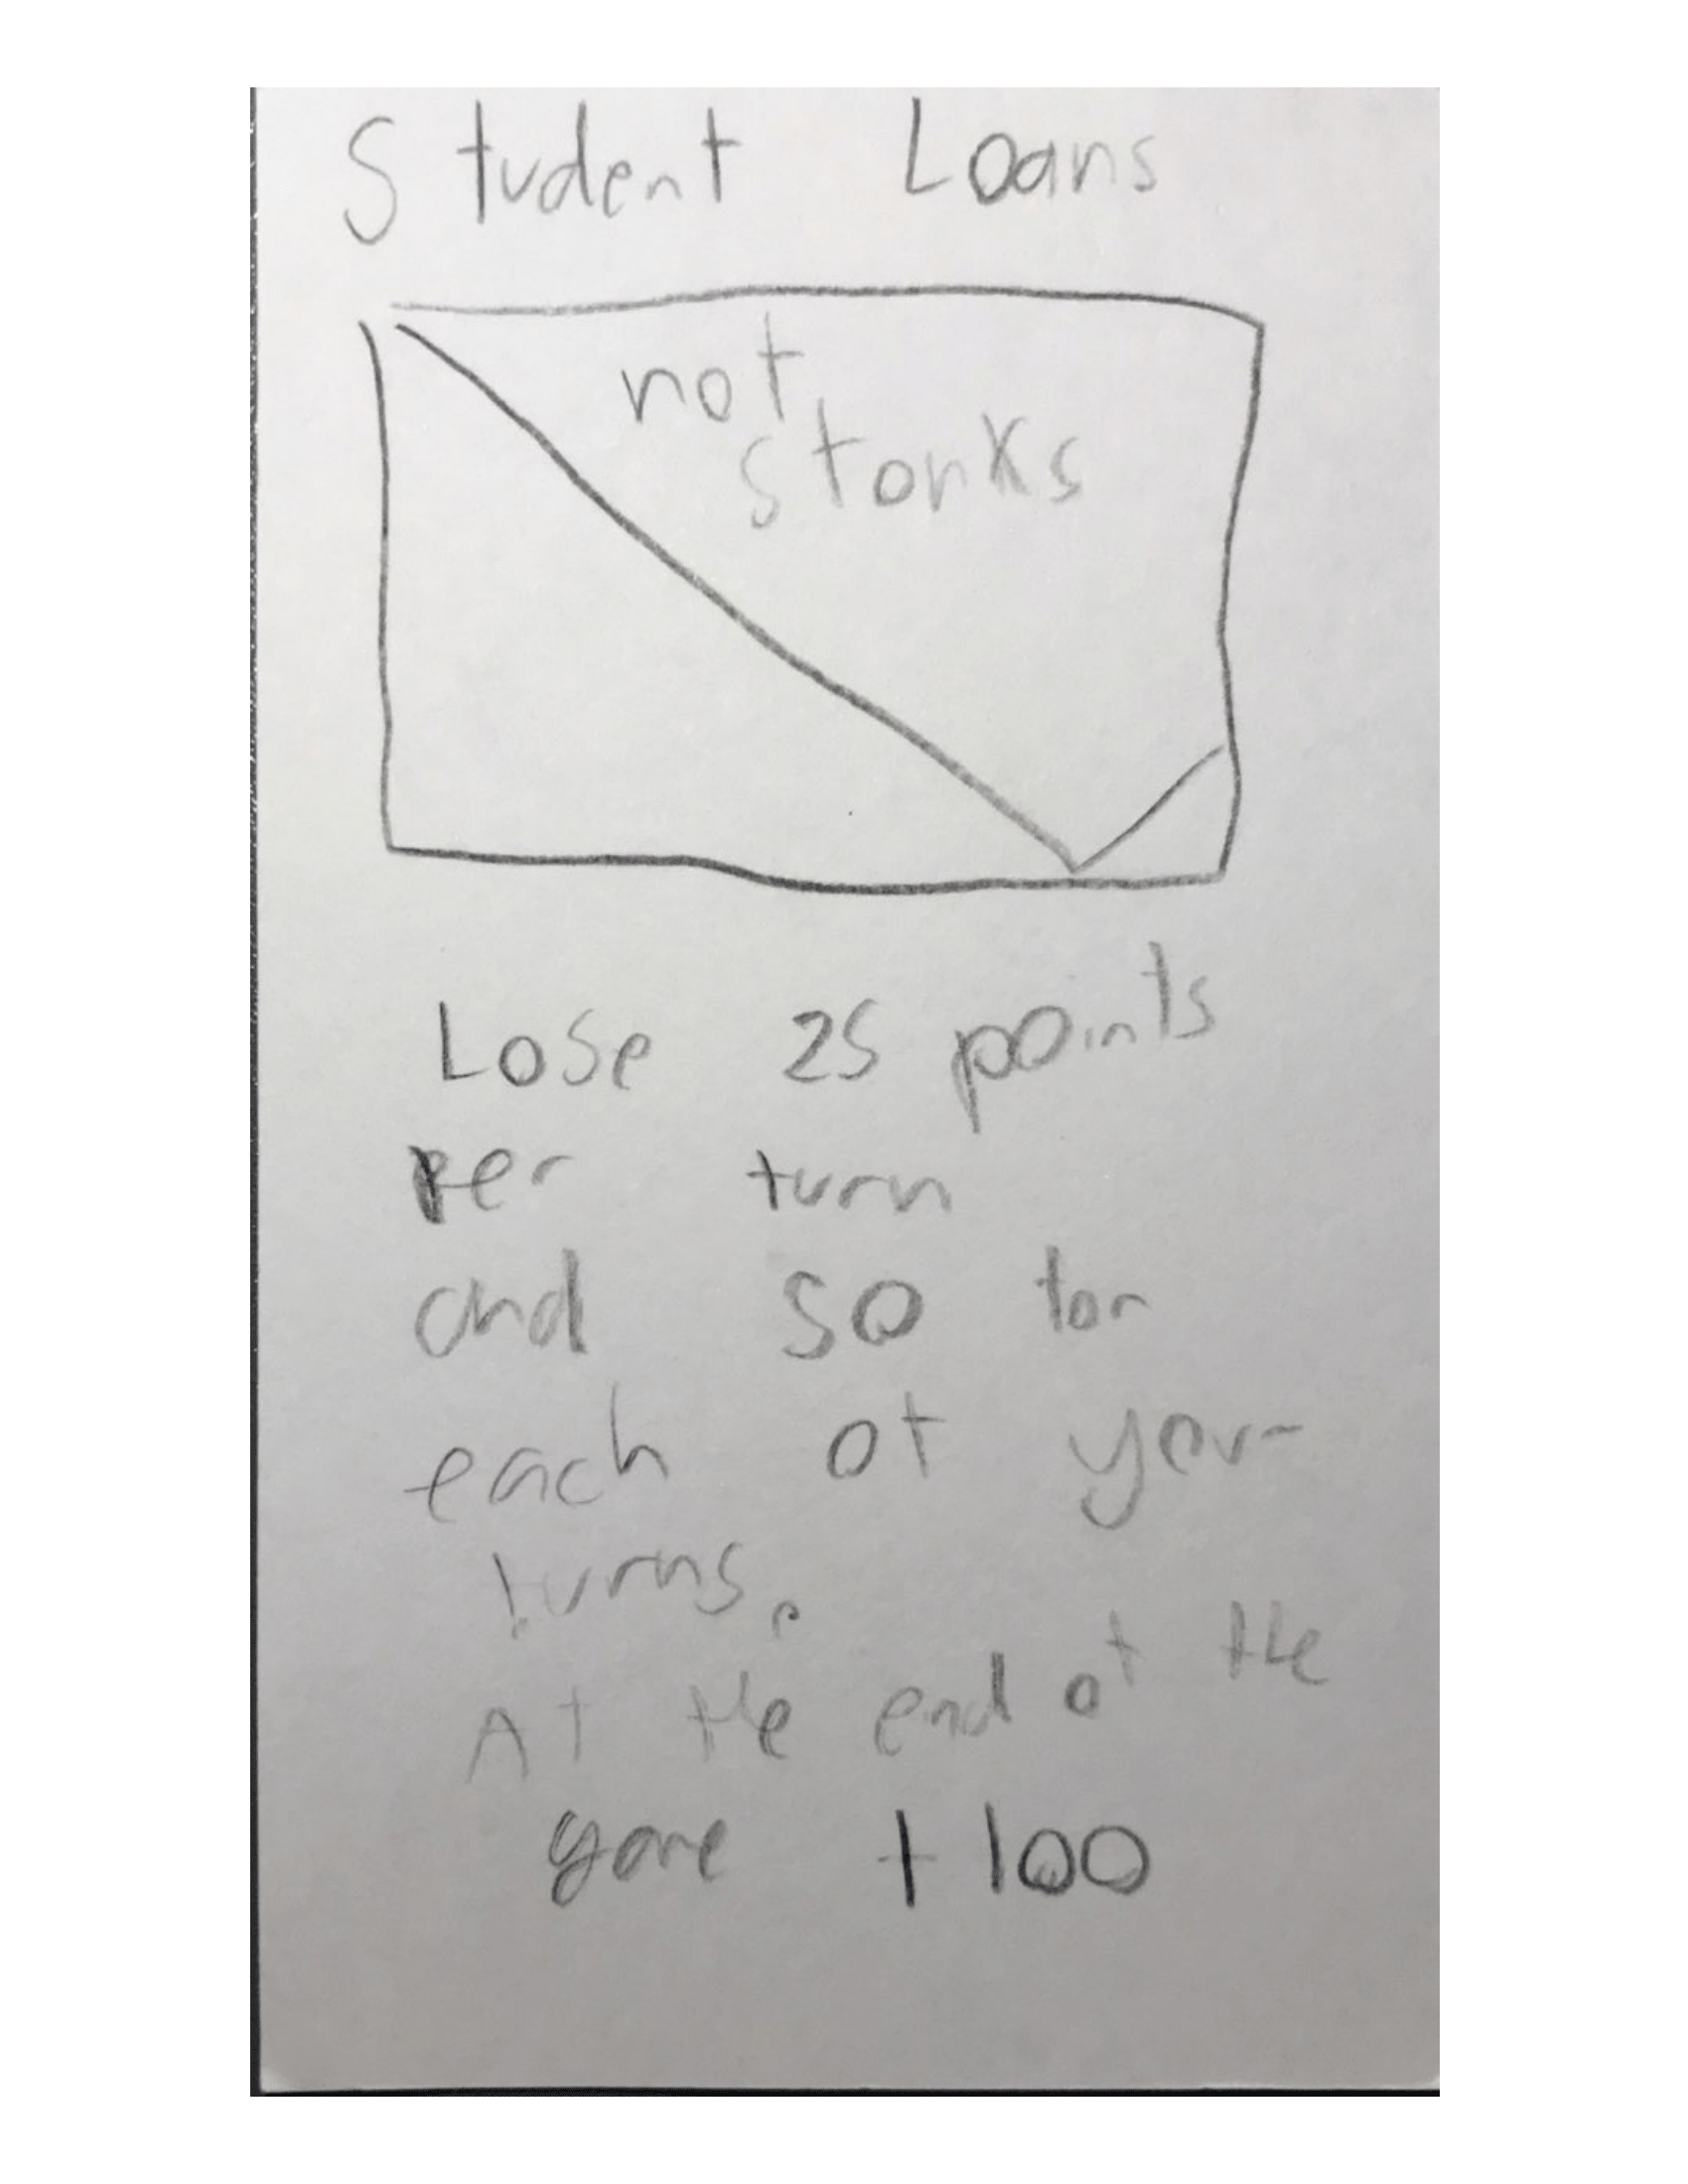 Student Loans
not
stonks
Lose 25 points
Per turn
and 50 for
each of your
turns.
At the end of the
game +100